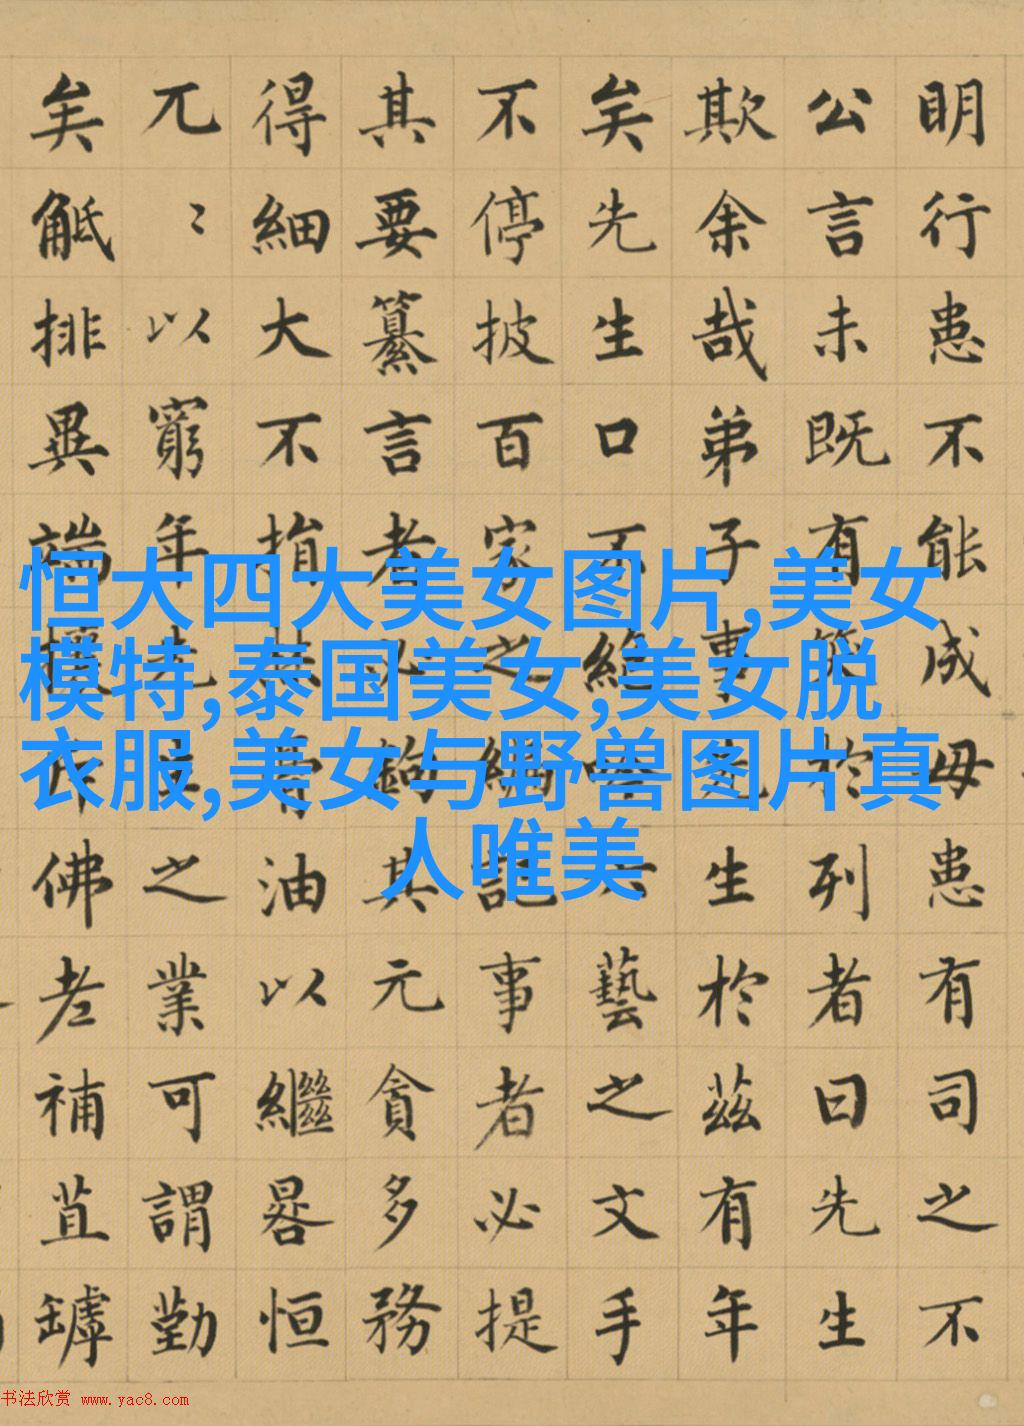 明行患不能成毋患有司之不
公言未既有笑於列者曰先生
欺余哉弟子事先生於茲有年
矣先生口不絶吟六藝之文手
不停披百家之編記事者必提
其要纂言者必鉤其元貪多務
得細大不捐焚膏油以繼晷恒
兀〻以窮年先生之業可謂勤
矣觝排異端攘斥佛老補苴罅
恒大四大美女图片,美女
模特,泰国美女,美女脱
衣服,美女与野兽图片真
人唯美
书法欣赏 www.yac8.com